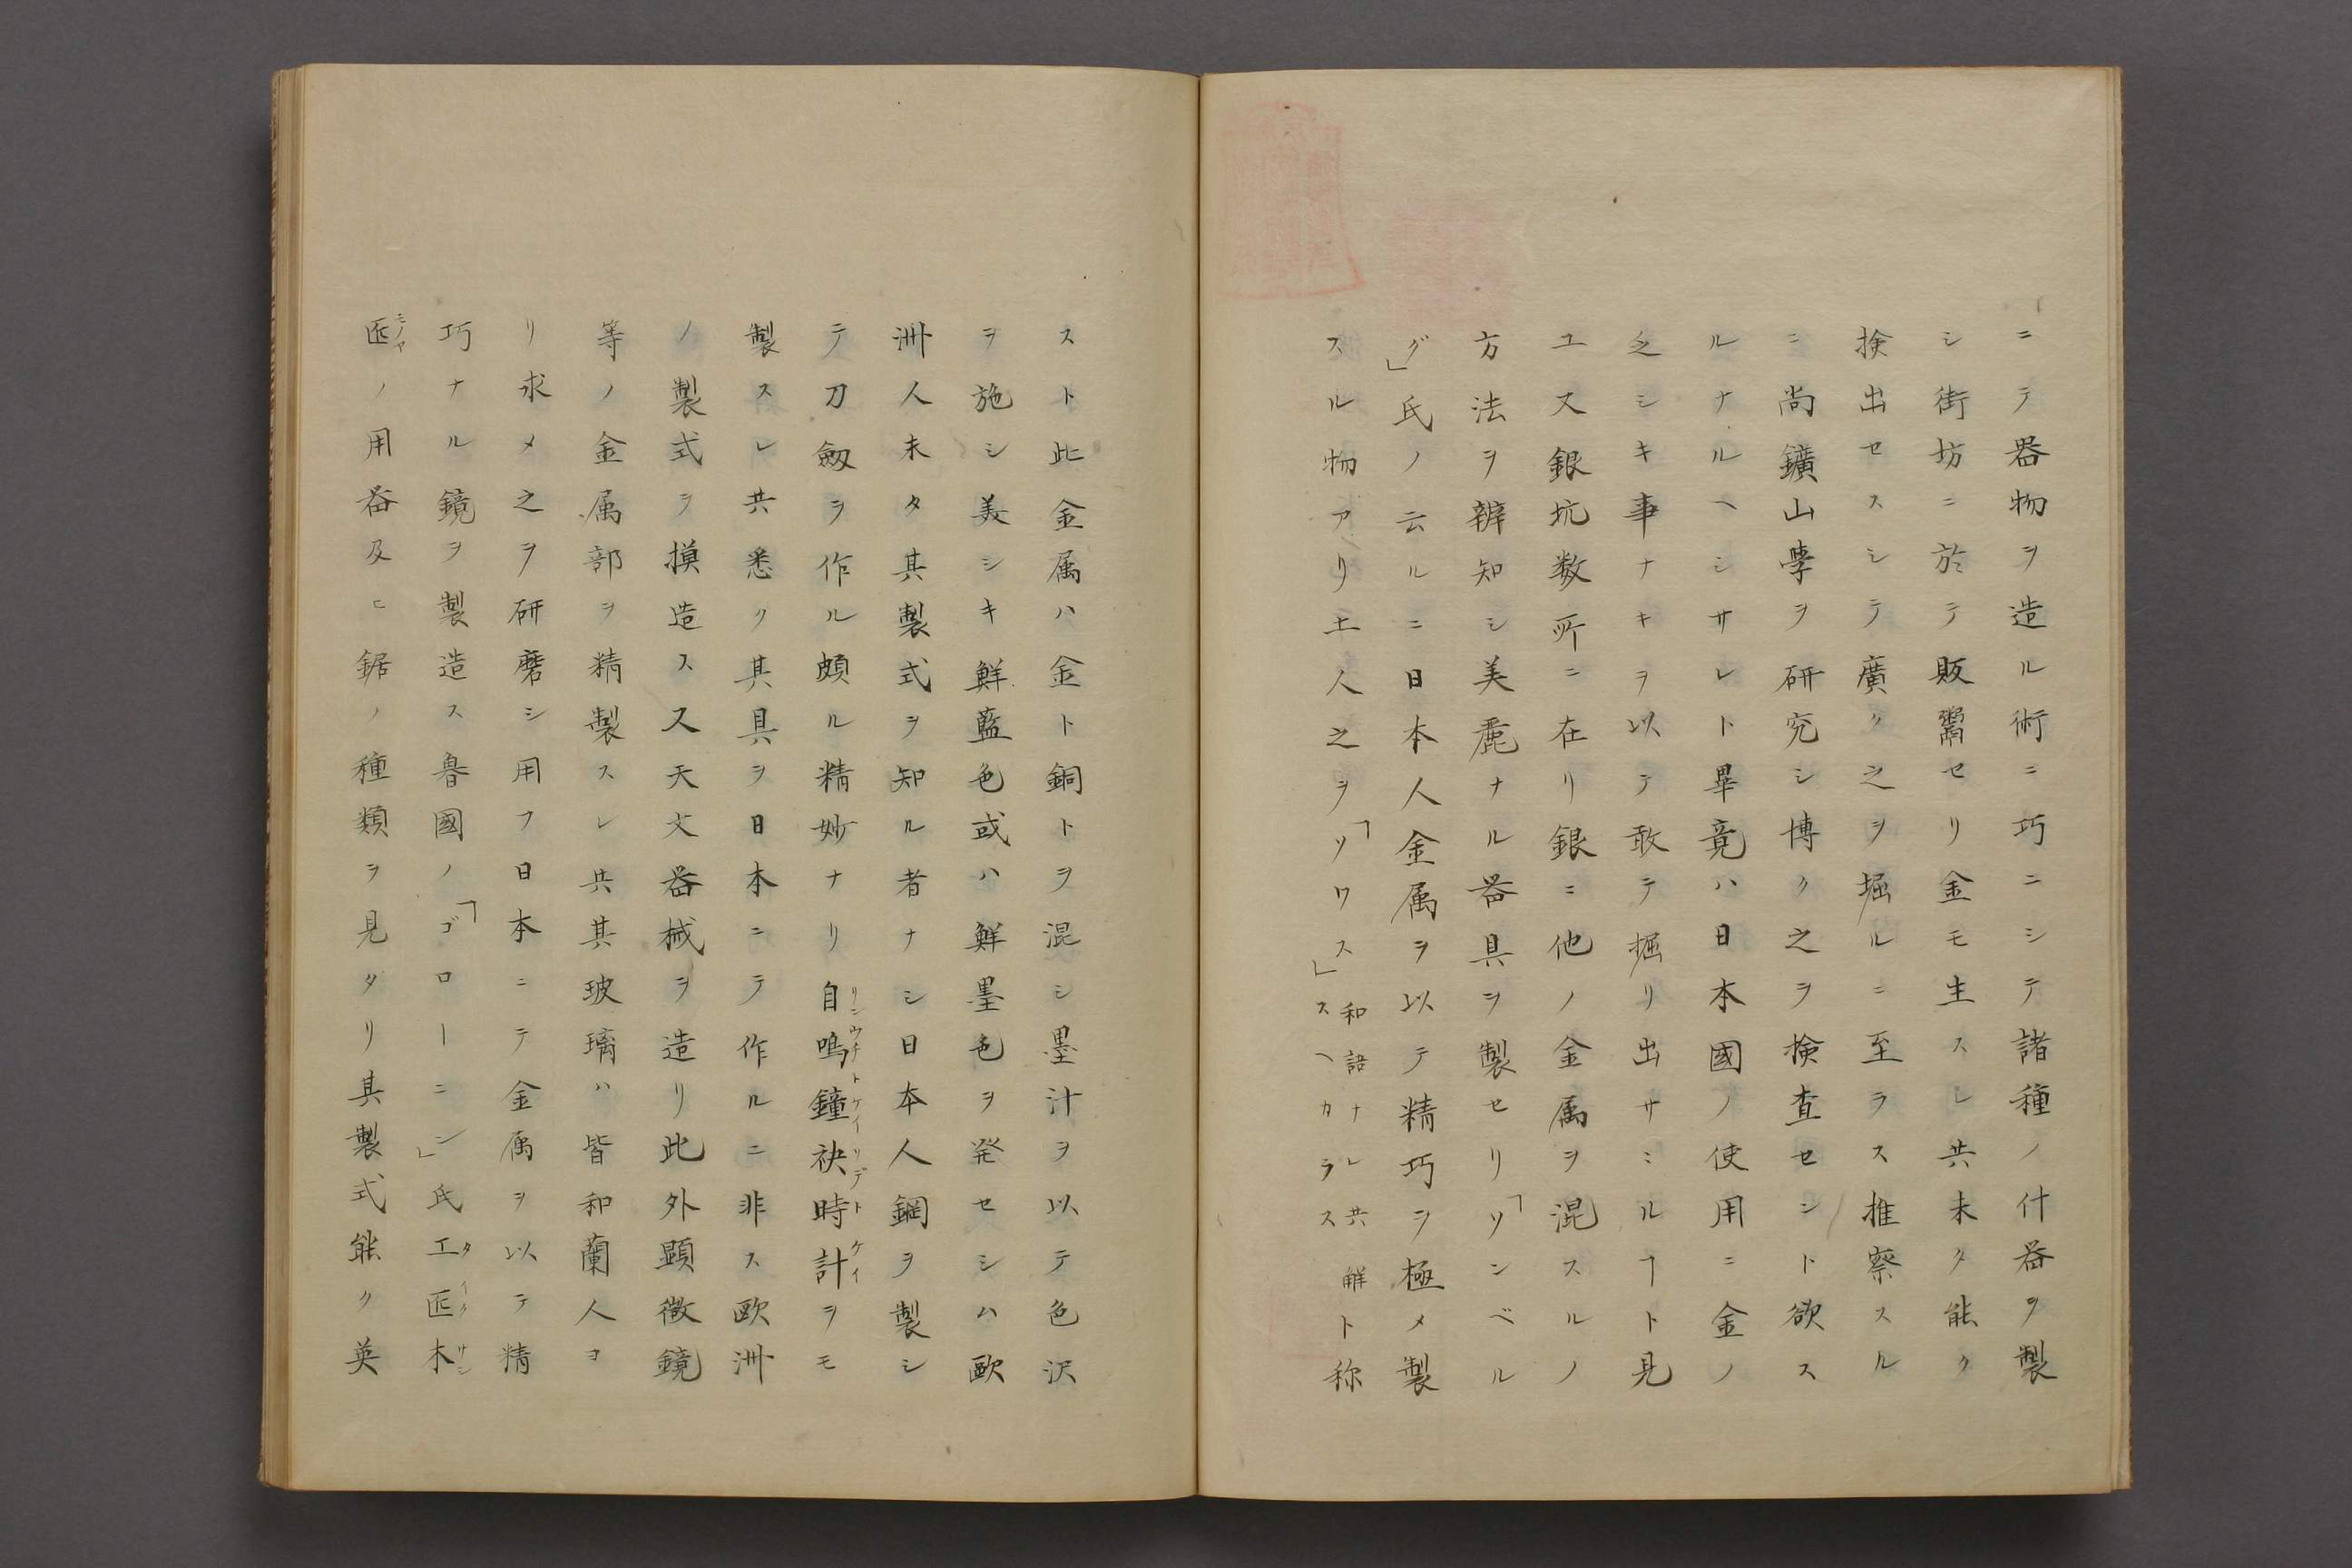 ニテ器物ヲ造ル術ニ巧ニシテ諸種ノ什器ヲ製
シ街坊ニ於テ販鬻セリ金モ生スレ共未タ能ク
検出セスシテ廣ク之ヲ堀ルニ至ラス推察スル
ニ尚鑛山學ヲ研究シ博ク之ヲ検査セシト欲ス
ルナルヘシサレト畢竟ハ日本國ノ使用ニ金ノ
乏シキ事ナキヲ以テ敢テ掘リ出サミルヿト見
ユ又銀坑数所ニ在リ銀ニ他ノ金属ヲ混スルノ
方法ヲ辨知シ美麗ナル器具ヲ製セリ「ソンベル
グ」氏ノ云ルニ日本人金属ヲ以テ精巧ヲ極メ製
スル物アリ土人之ヲ「ソワス」和語ナレ共解スヘカラストス称
スト此金属ハ金ト銅トヲ混シ墨汁ヲ以テ色沢
ヲ施シ美シキ鮮藍色或ハ鮮墨色ヲ発セシハ歐
洲人未タ其製式ヲ知ル者ナシ日本人鋼ヲ製シ
テ刀劔ヲ作ル頗ル精妙ナリ自鳴鐘袂時計ヲモ
製スレ共悉ク其具ヲ日本ニテ作ルニ非ス歐洲
ノ製式ヲ摸造ス又天文器械ヲ造リ此外顕微鏡
等ノ金属部ヲ精製スレ共其玻璃ハ皆和蘭人ヨ
リ求メ之ヲ研磨シ用フ日本ニテ金属ヲ以テ精
巧ナル鏡ヲ製造ス魯國ノ「ゴローニン」氏工匠木
匠ノ用器及ヒ鋸ノ種類ヲ見タリ其製式能ク英